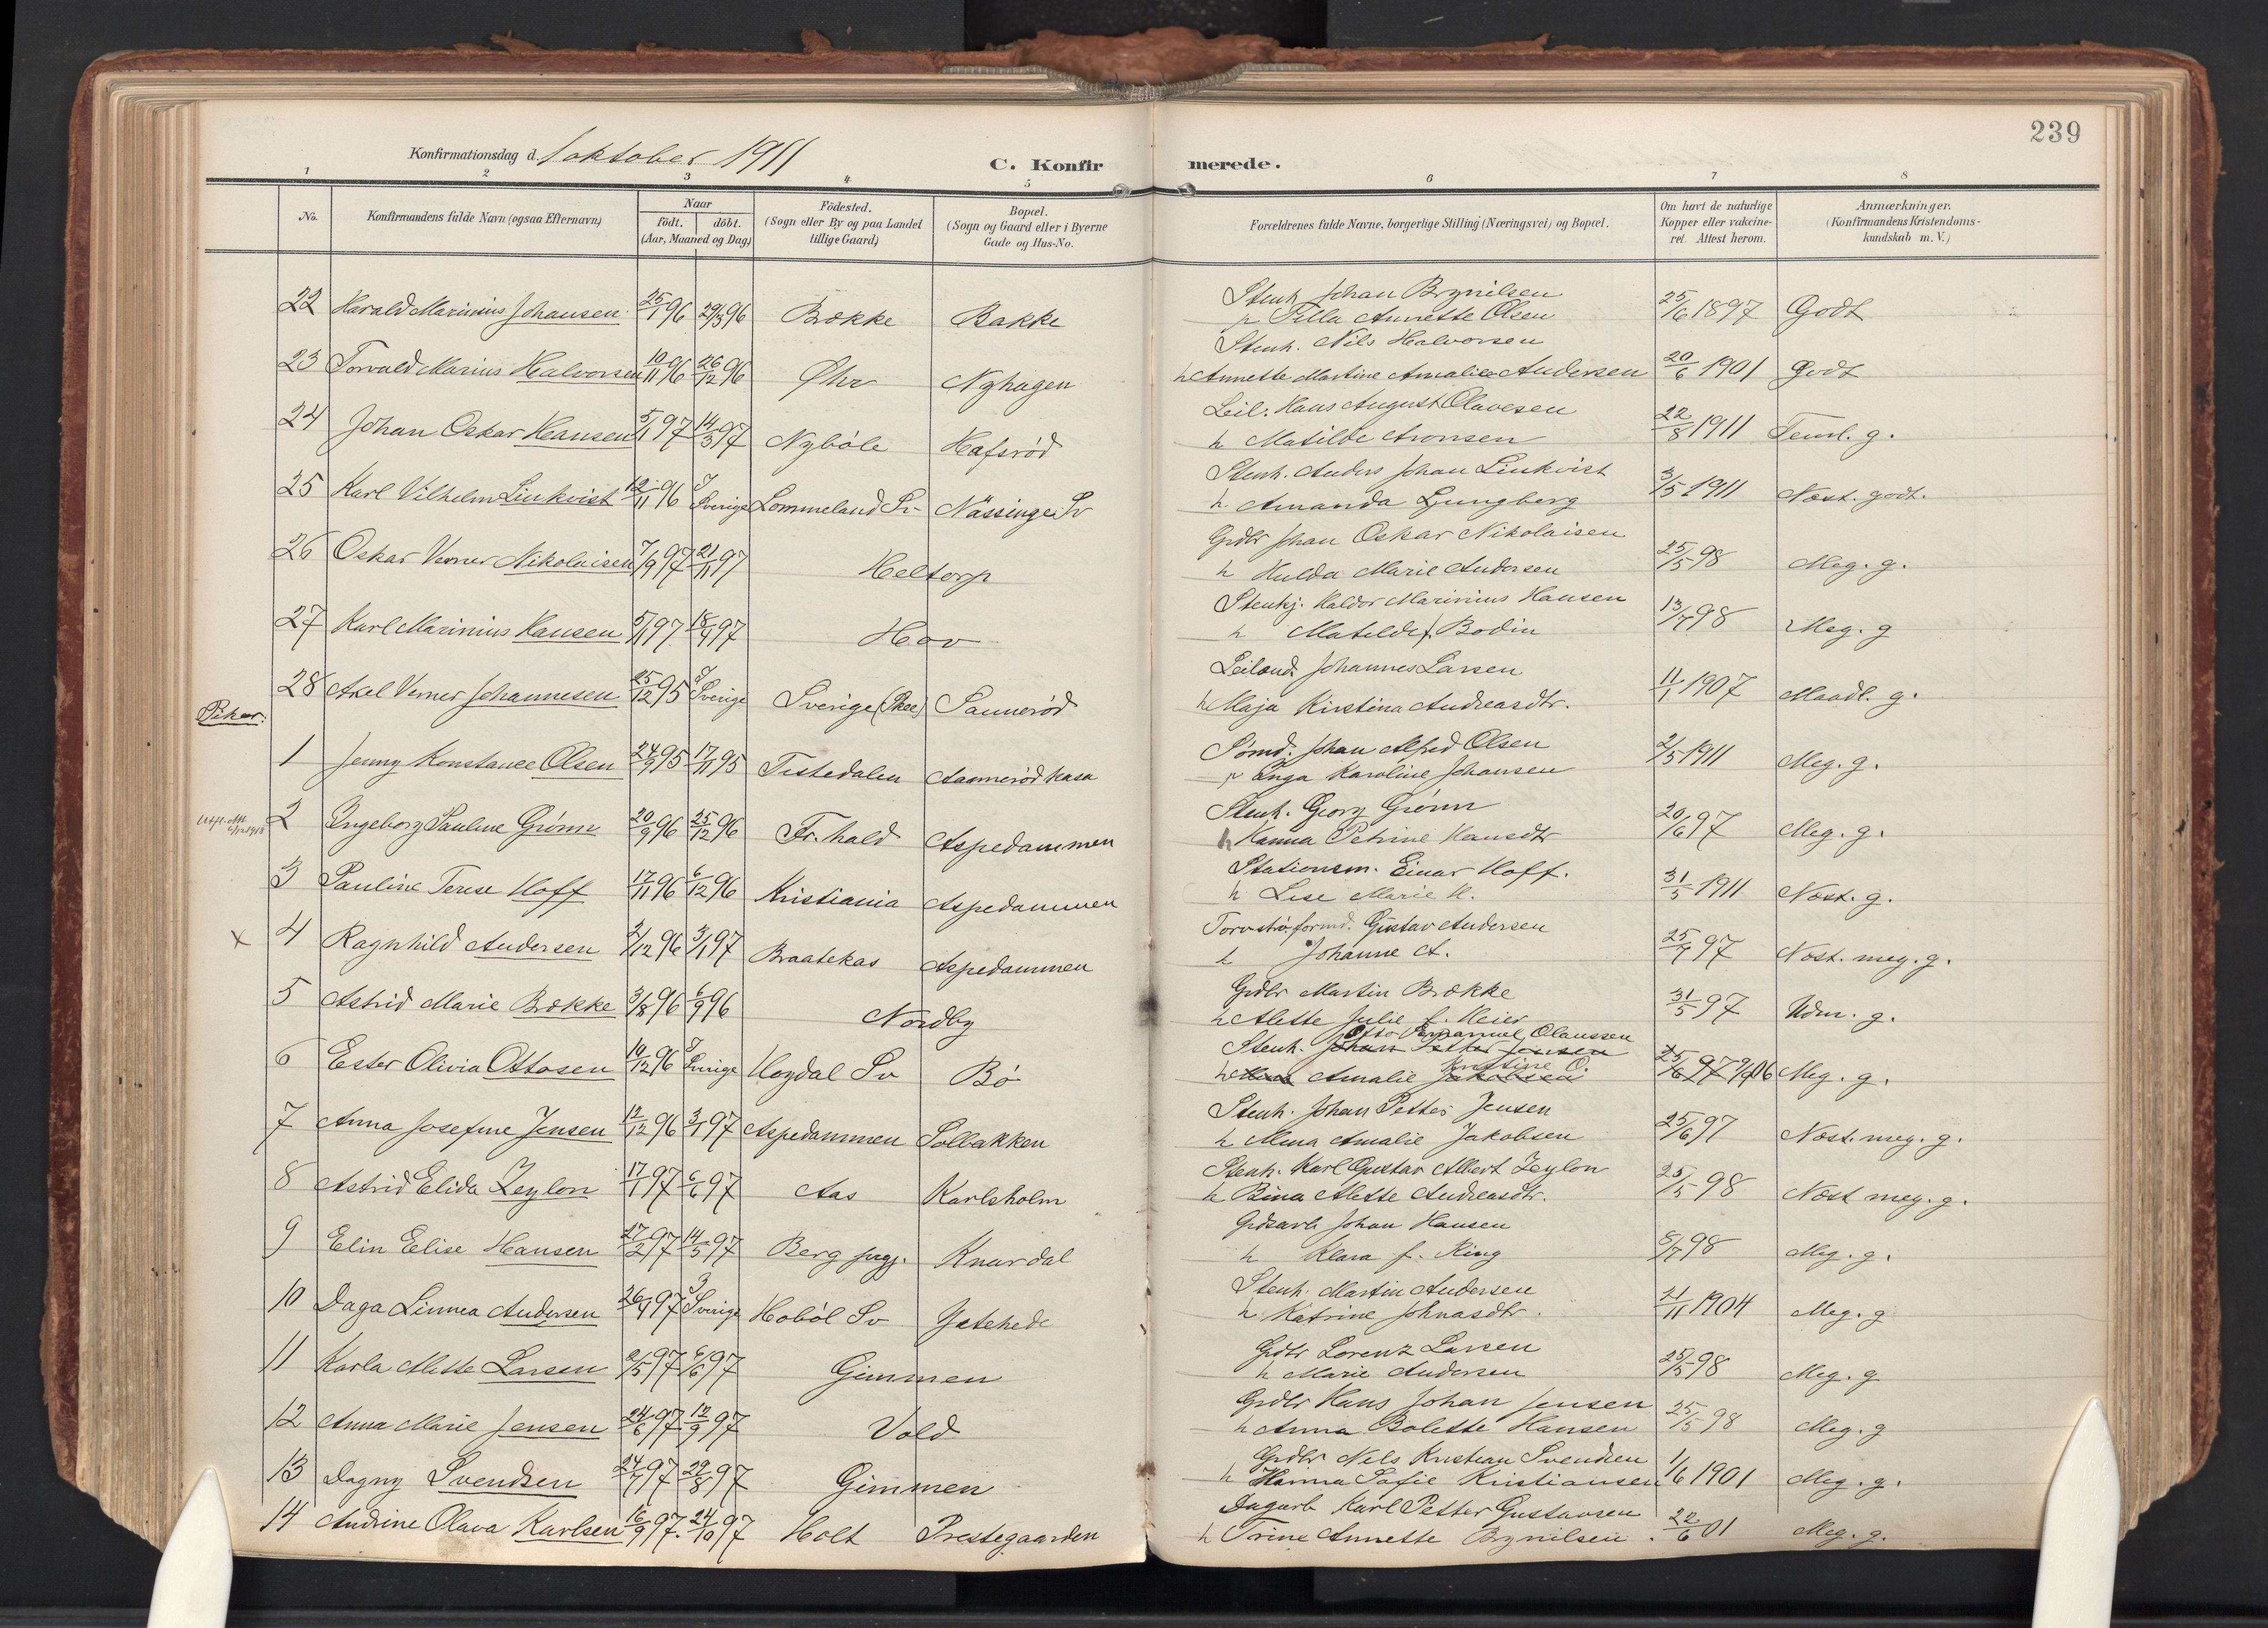 239
Konfirmationsdag d. 1 oktober 1911
C. Konfirmerede.
1 2 3 4 5 6 7 8
No.
Konfirmandens fulde Navn (ogsaa Efternavn)
Naar
födt. döbt.
(Aar, Maaned og Dag)
Födested.
(Sogn eller By og paa Landet
tillige Gaard)
Bopæl.
(Sogn og Gaard eller i Byerne
Gade og Hus-No.
Forældrenes fulde Navne, borgerlige Stilling (Næringsvei) og Bopæl.
Om havt de naturlige
Kopper eller vakcine-
ret. Attest herom.
Anmærkninger.
(Konfirmandens Kristendoms-
kundskab m. V.)
22 Harald Marinius Johansen 25/1 96 29/3 96 Brække Bakke
Stenh. Johan Brynilsen
Pilla Annette Olsen
25/6 1897 Godt
23 Torvald Marius Halvorsen 10/11 96 26/12 96 Øhr Nyhagen
Stenh. Nils Halvorsen
h Annette Martine Amalie Andersen
20/6 1901 Godt
24 Johan Oskar Hansen 5/1 97 14/3 97 Nyböle Hafsröd
Leil. Hans August Olavesen
h Matilde Aronsen
22/8 1911 Teml. g.
25 Karl Vilhelm Linkvist 12/11 96 I Sverige Lommeland Sv. Nässinge Sv
Stenh. Anders Johan Linkvist
h. Amanda Ljungberg
3/5 1911 Næst. godt.
26 Oskar Verner Nikolaisen 7/9 97 21/11 97 Heltorp
Grdbr Johan Oskar Nikolaisen
h Hulda Marie Andersen
25/5 98 Meg. g.
27 Karl Marinius Hansen 5/11 97 18/9 97 Hov
Stenhj. Haldor Marinius Hansen
h Matilde f. Bodin
13/7 98 Meg. g
28 Axel Verner Johannesen 25/12 95 I Sverige Sverige (Skee) Sannerød
Leilænd. Johannes Larsen
h Maja Kirstina Andreasdtr.
11/1 1907 Maadl. g.
Piker:
1 Jenny Konstance Olsen 24/9 95 17/11 95 Tistedalen Aamerödkasa
Sömd. Johan Alfred Olsen
Inga Karoline Johansen
2/5 1911 Meg. g.
2 Ingeborg Pauline Grönn 20/9 96 25/12 96 Fr.hald Aspedammen
Stenh. Georg Grönn
h Hanna Petrine Hansdtr
20/6 97 Meg. g.
3 Pauline Terese Hoff 17/11 96 6/12 96 Kristiania Aspedammen
Stationsm. Einar Hoff.
h Lise Marie H.
31/5 1911 Næst. g.
x 4 Ragnhild Andersen 2/12 96 3/1 97 Braatekas Aspedammen
Torvströformd. Gustav Andersen
h Johanne A.
25/7 97 Næst. meg. g.
5 Astrid Marie Brække 3/8 96 6/9 96 Nordby
Grdbr Martin Brække
h Alette Julie f. Meier
31/5 97 Udm. g.
6 Ester Olivia Ottosen 10/12 96 I Sverige Hogdal Sv Bö
Otto Emanuel Olaussen
Stenh. Johan Petter Jensen
Kristine O.
h Mina Amalie Jakobsen
25/6 97 9/9 06 Meg. g.
7 Anna Josefine Jensen 12/12 96 3/1 97 Aspedammen Solbakken
Stenh. Johan Petter Jensen
h Mina Amalie Jakobsen
25/6 97 Næst. meg. g.
8 Astrid Elida Zeylon 17/1 97 6/6 97 Aas Karlsholm
Stenh. Karl Gustav Albert Zeylon
h Bina Alette Andreasdtr.
25/5 98 Næst meg. g.
9 Elin Elise Hansen 27/2 97 14/5 97 Berg prgj. Knardal
Grdsarb Johan Hansen
h Klara f. Ring
8/7 98 Meg. g.
10 Daga Linnea Andersen 26/4 97 I Sverige Hoböl Sv Jstehede
Stenh. Martin Andersen
h. Katrine Johnasdtr.
21/11 1904 Meg. g
11 Karla Alette Larsen 2/5 97 6/6 97 Gimmen
Grdbr Lorenz Larsen
h Marie Andersen
25/5 98 Meg. g
12 Anna Marie Jensen 24/6 97 12/9 97 Vold
Grdbr Hans Johan Jensen
h Anna Bolette Hansen
25/5 98 Meg. g
13 Dagny Svendsen 24/7 97 29/8 97 Gimmen
Grdbr Nels Kristian Svendsen
h Hanna Sofie Kristiansen
1/6 1901 Meg. g.
14 Andrine Olava Karlsen 16/9 97. 24/10 97 Holt Prestegaarden
Dagarb Karl Petter Gustavsen
h Trine Annette Brynilsen.
22/6 01 Meg. g.